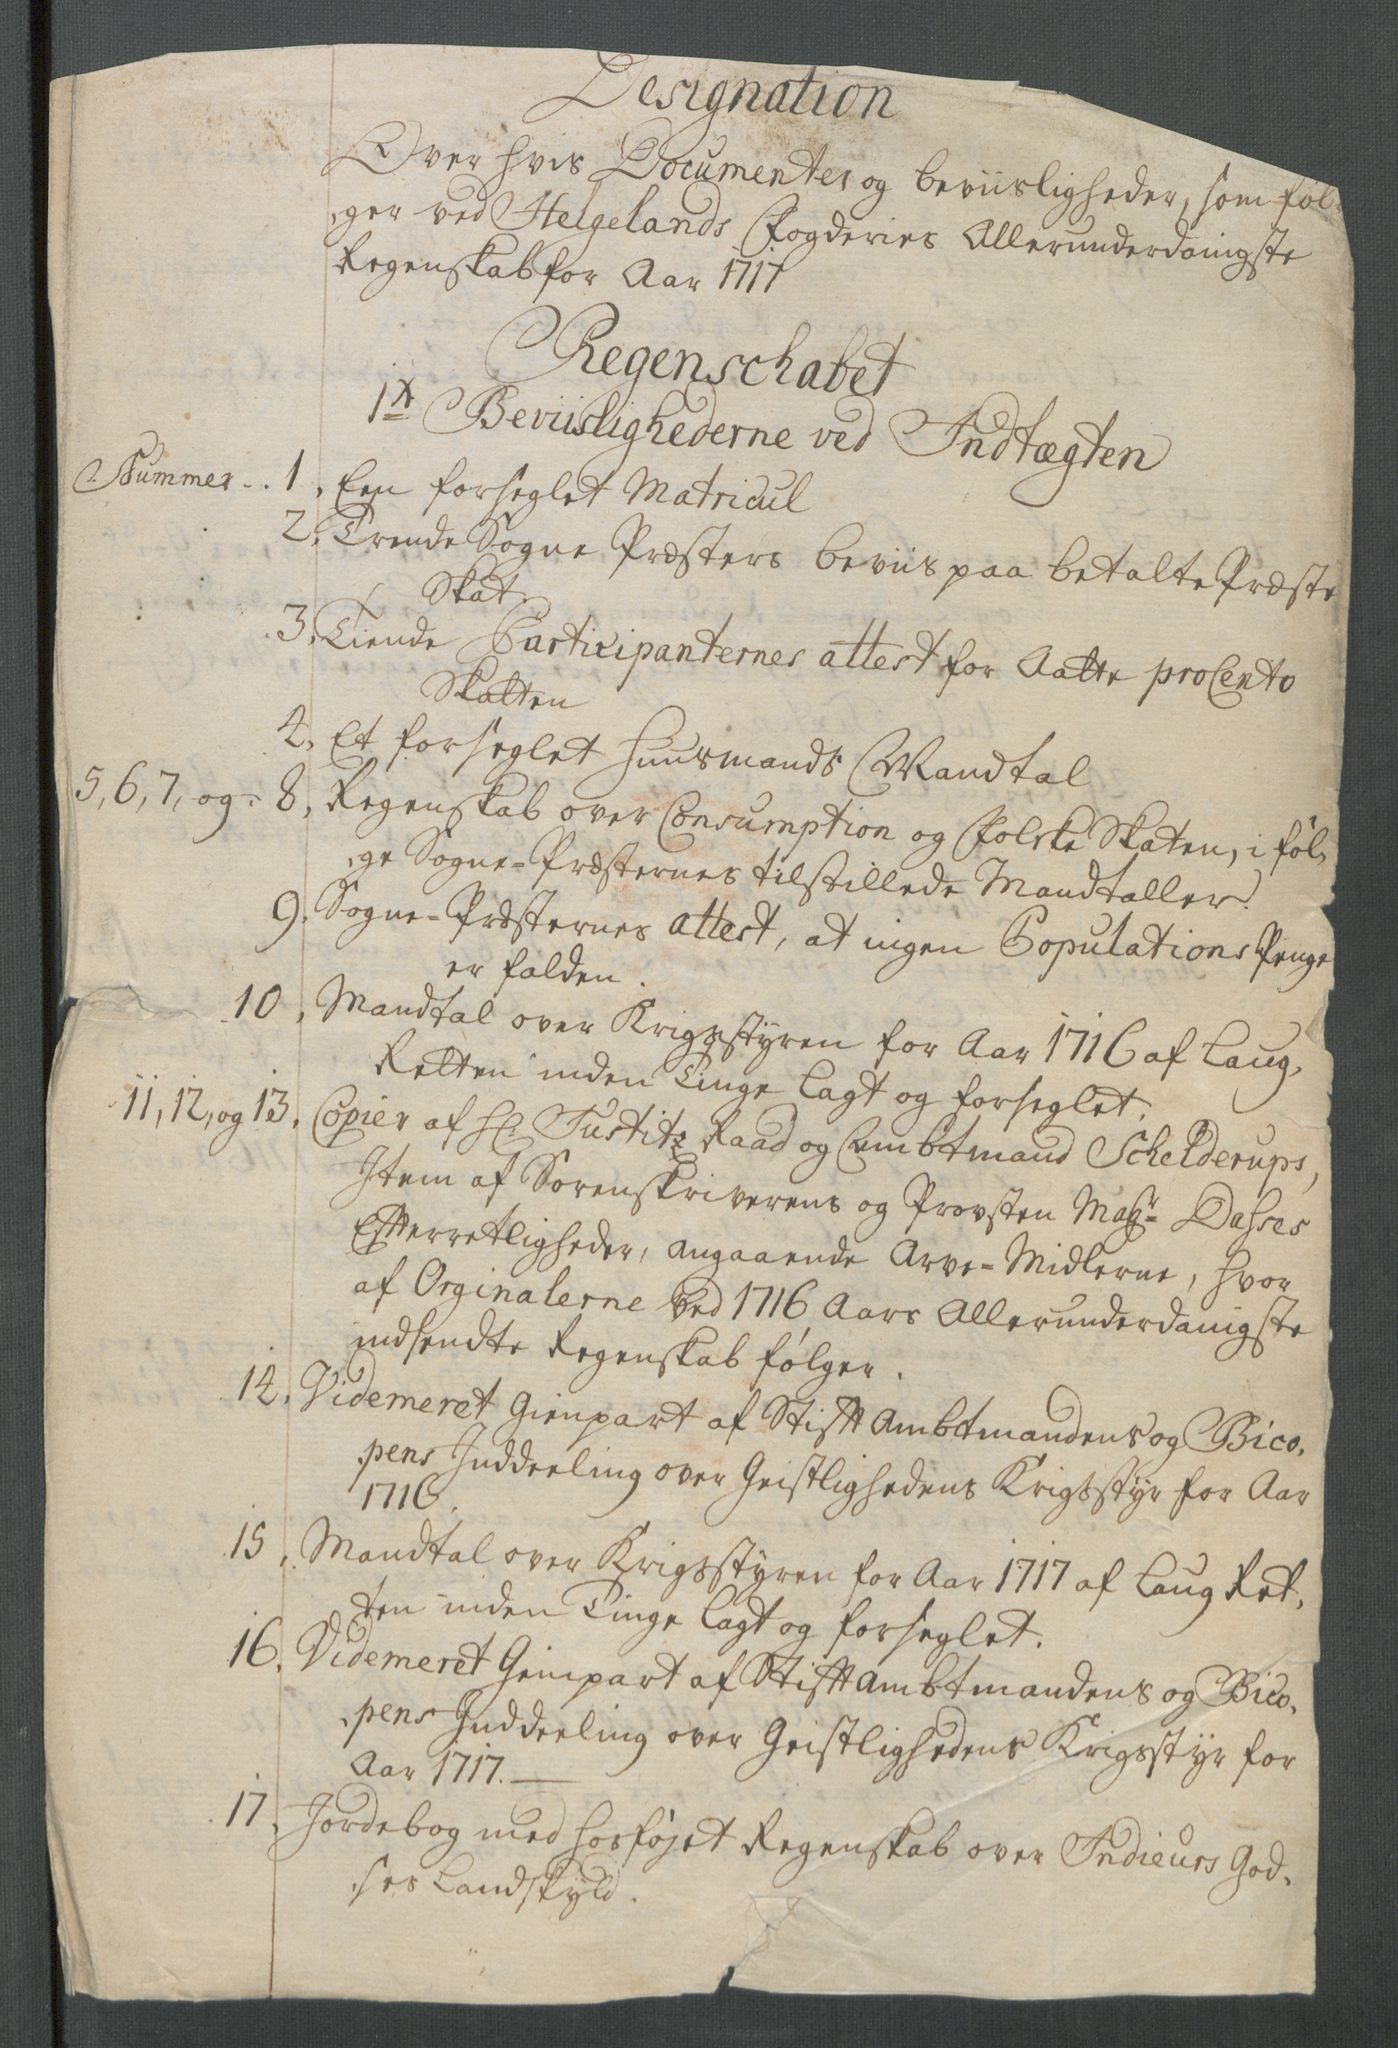 Designation
Over hvis Documenter og beviisligheder, som føl-
ger ved Helgelands Fogderies Allerunderdanigste
Regenskab for Aar 1717
Regenschabet
Beviislighederne ved Indtægten
Nummer .. 1, Een forseglet Matricul
2, Trende Sogne Præsters beviis paa betalte Præste
Skat.
3, Tiende Participanternes attest for Aatte pro Cento
Skatten
4, Et forseglet Huusmands Mandtal
5, 6, 7, og 8, Regenskab over Consumption og Folske Skaten, i føl-
ge Sogne-Præsternes tilstillede Mandtaller.
9, Sogne-Præsternes attest, at ingen Copulations Penge
er falden.
10, Mandtal over Krigsstyren for Aar 1716 af Laug-
Retten inden Tinge lagt og forseglet.
11, 12, og 13, Copier af Hr. Justitz Raad og Ambtmand Schelderups,
Item af Sorenskriverens og Provsten Magr Dasses
Efterretligheder, angaaende Arve-Midlerne, hvor
af Orginalerne ved 1716 Aars Allerunderdanigste
indsendte Regenskab følger.
14, Videmeret Gienpart af Stifft Ambtmandens og Bico-
pens Inddeeling over Geistlighedens Krigsstyr for Aar
1716.
15, Mandtal over Krigsstyren for Aar 1717 af Laug Ret-
ten inden Tinge lagt og forseglet.
16, Videmeret Genpart af Stifft Ambtmandens og Bico-
pens Inddeeling over Geistlighedens Krigsstyr for
Aar 1717.
17, Jordebog med hosføjet Regenskab over Indieurs God-
ses Landskyld.